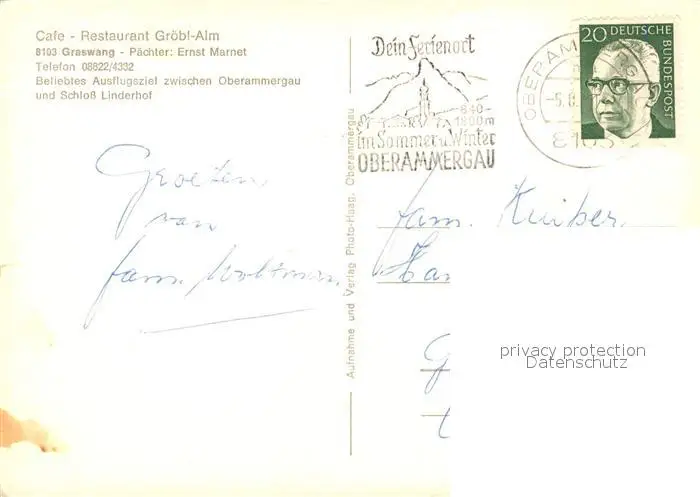 Cafe - Restaurant Gröbl-Alm
8103 Graswang - Pächter: Ernst Marnet
Telefon 08822/4332
Beliebtes Ausflugsziel zwischen Oberammergau
und Schloß Linderhof
Groeten
van
fam.
Aufnahme und Verlag Photo-Haag, Oberammergau
Dein Ferienort
840-
1800m
im Sommer u. Winter
OBERAMMERGAU
20 DEUTSCHE
BUNDESPOST
OBERAM
-5.8
8103
fam. Kuiber
privacy protection
Datenschutz